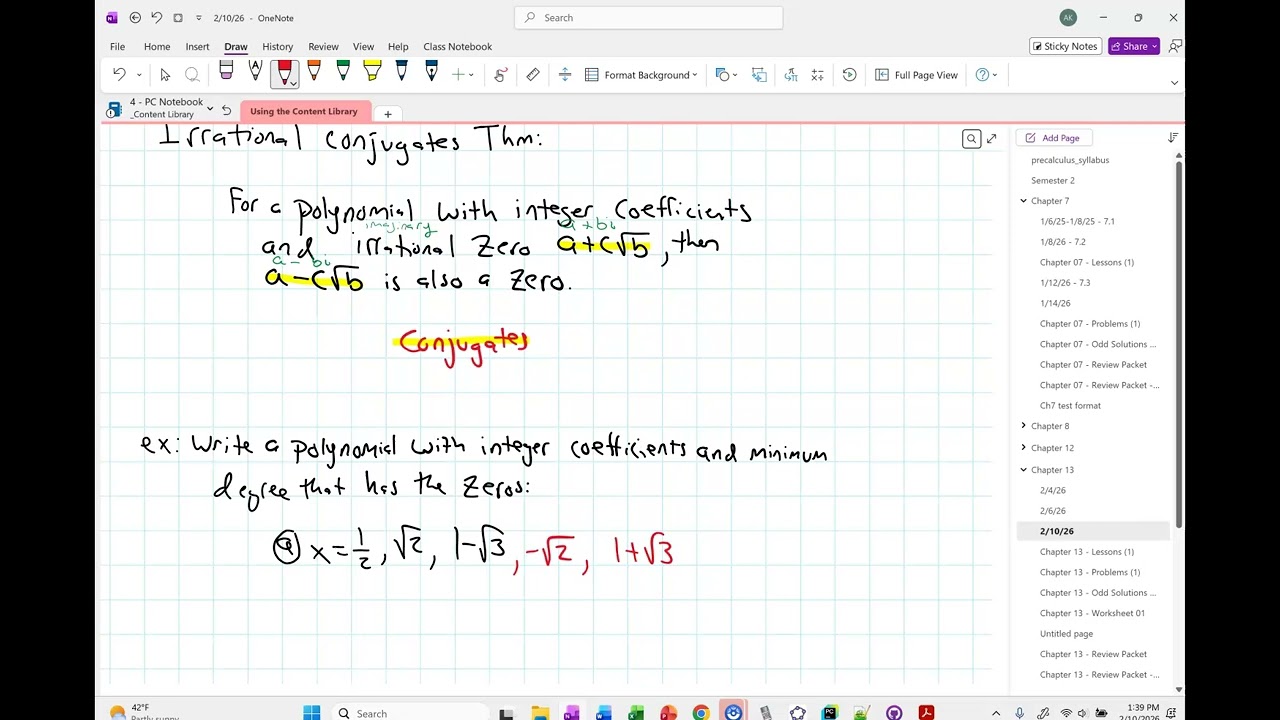 2/10/26 - OneNote
Search
AK
File Home Insert Draw History Review View Help Class Notebook
Sticky Notes
Share
Format Background
Full Page View
4 - PC Notebook
_Content Library
Using the Content Library
Add Page
precalculus_syllabus
Semester 2
Chapter 7
1/6/25-1/8/25 - 7.1
1/8/26 - 7.2
Chapter 07 - Lessons (1)
1/12/26 - 7.3
1/14/26
Chapter 07 - Problems (1)
Chapter 07 - Odd Solutions ...
Chapter 07 - Review Packet
Chapter 07 - Review Packet -...
Ch7 test format
Chapter 8
Chapter 12
Chapter 13
2/4/26
2/6/26
2/10/26
Chapter 13 - Lessons (1)
Chapter 13 - Problems (1)
Chapter 13 - Odd Solutions ...
Chapter 13 - Worksheet 01
Untitled page
Chapter 13 - Review Packet
Chapter 13 - Review Packet -...
Irrational Conjugates Thm:
For a polynomial with integer coefficients
imaginary a + bi
and irrational zero a+c√b, then
a - bi
a-c√b is also a zero.
Conjugates
ex: Write a polynomial with integer coefficients and minimum
degree that has the zeros:
ⓐ x = 1/2, √2, 1-√3, -√2, 1+√3
42°F
Partly sunny
Search
1:39 PM
2/10/2026